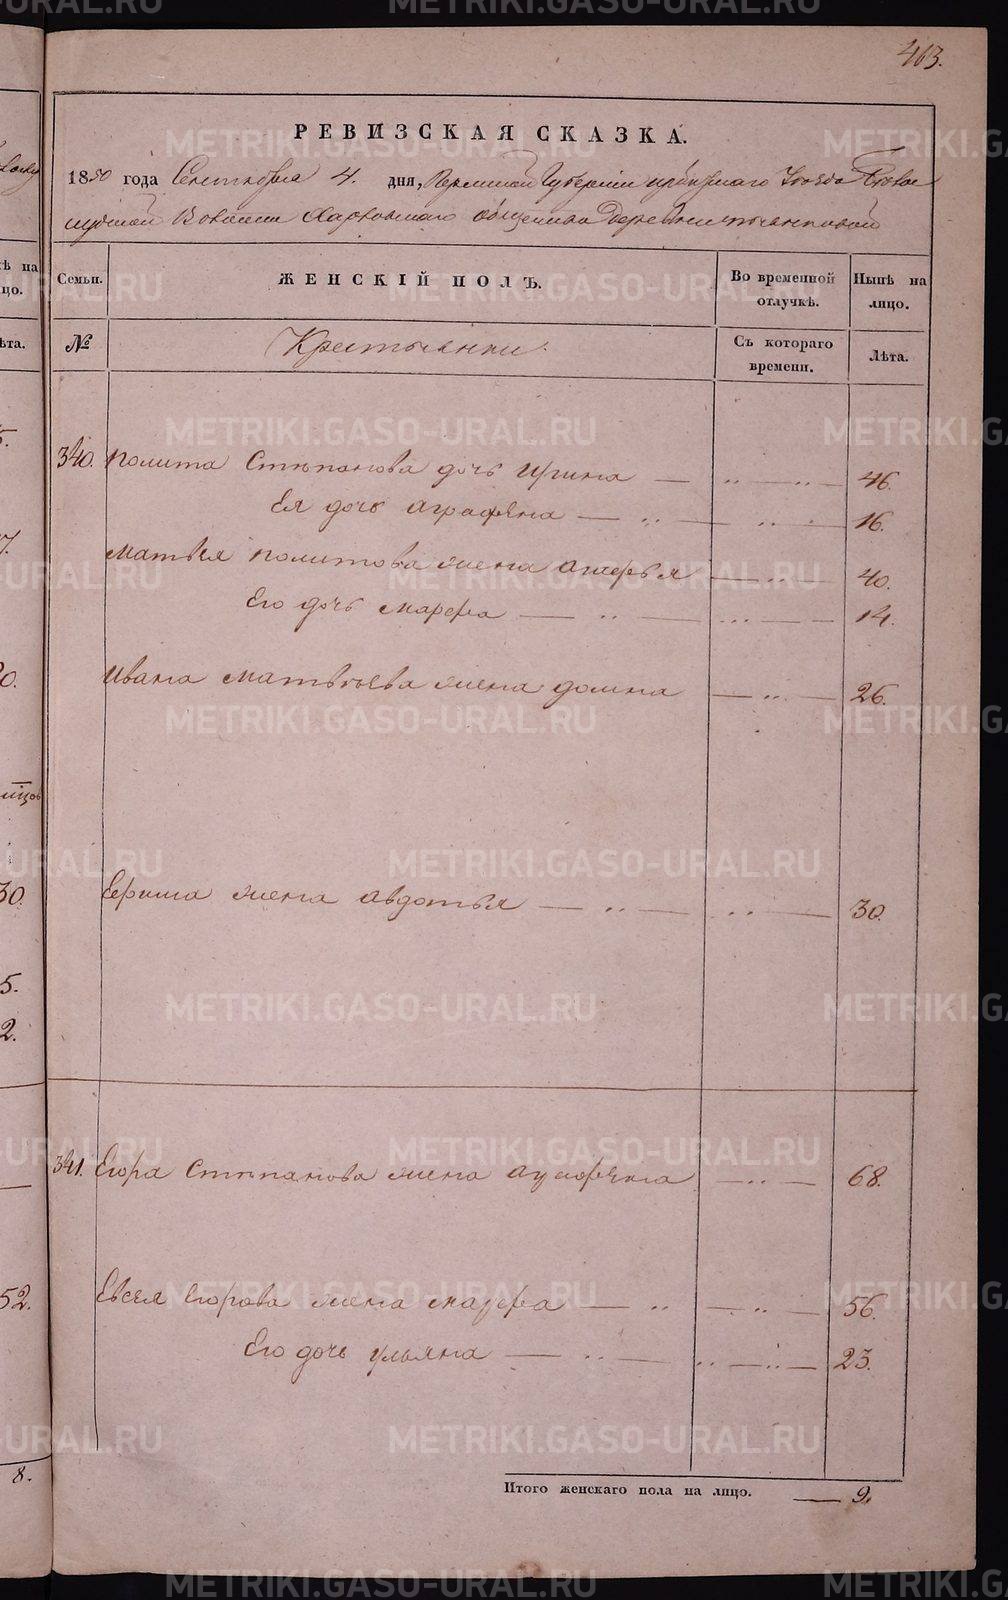 413.
РЕВИЗСКАЯ СКАЗКА.
1850 года Сентября 4. дня, Пермской Губернии Ирбитскаго Уезда
Волости Харловскаго общества Деревни
Семьи. ЖЕНСКІЙ ПОЛЪ. Во временной отлучкѣ. Нынѣ на лицо.
№ Крестьянки. Съ котораго времени. Лѣта.
340. Полита Степанова дочь Ирина 46.
Ея дочь Аграфена 16.
Матвея Политова жена 40.
Его дочь Марфа 14.
Ивана Матвѣева жена Домна 26.
жена Авдотья 30.
341. Егора Степанова жена 68.
Евсея Егорова жена Марфа 56.
Его дочь Ульяна 23.
Итого женскаго пола на лицо. 9.
30.
5.
2.
52.
8.
METRIKI.GASO-URAL.RU